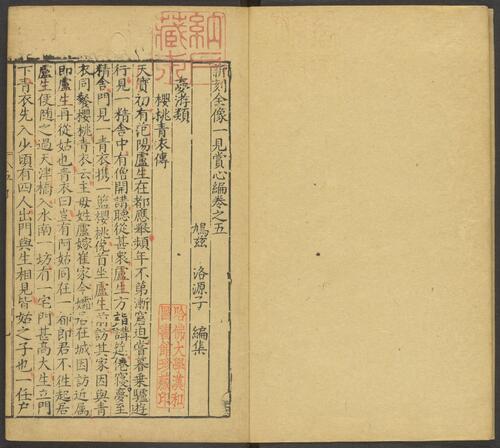 新刻全像一見賞心編卷之五
鳩茲 洛源子 編集
夢游類
櫻桃青衣傳
天寶初有范陽盧生在都應舉頻年不第漸窘迫嘗暮乗驢遊
行見一精舍中有僧開講聽從甚衆盧生方詣講筵倦寢夢至
精舍門見一青衣携一籃櫻桃在首坐盧生前訪其家因與青
衣同飡櫻桃青衣云主母姓盧嫁崔家今孀居在城因訪近属
即盧生再從姑也青衣曰豈有阿姑同在一都郎君不徃起居
盧生便随之過天津橋入水南一坊有一宅門甚高大生立門
下青衣先入少頃有四人出門與生相見皆姑之子也一任户
哈佛大學漢和
圖書館珍藏印